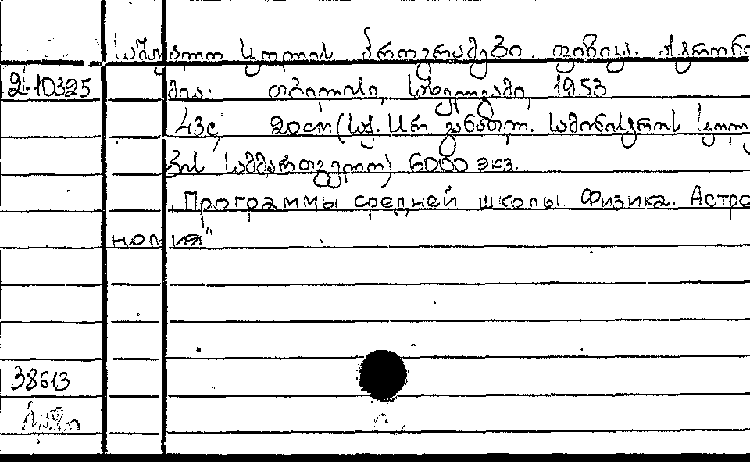 საშუალო სკოლის პროგრამები. ფიზიკა. ასტრონო
2-10325 მია. თბილისი, სახელგამი, 1953
43გ; 20cm (საქ. სსრ განათლ. სამინისტროს სკოლე
ბის სამმართველო) 6000 экз.
„Программы средней школы. Физика. Астро
номия"
38613